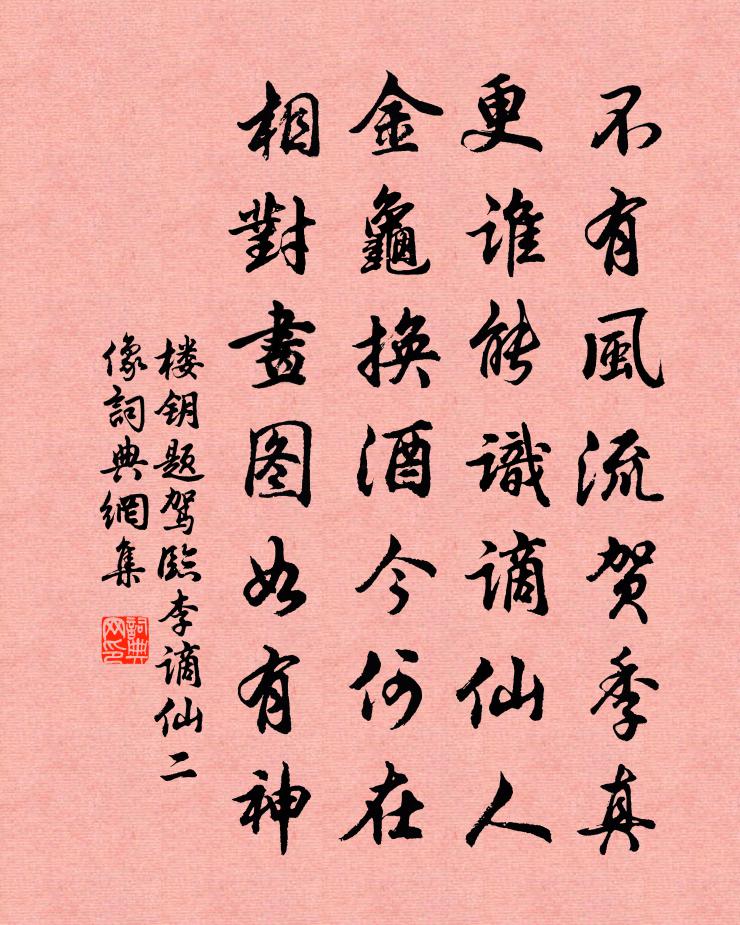 不有風流贺季真
更谁能識謫仙人
金龜换酒今何在
相對畫图如有神
楼钥题驾臨李謫仙二
像詞典網集
詞典网印